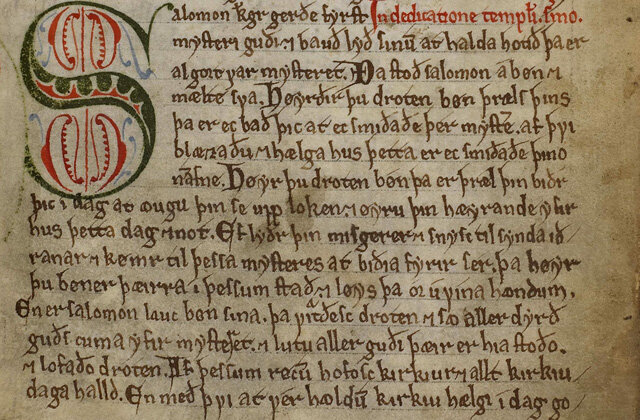 Salomon kgr gerðe fyrst In dedicatione templi. sermo.
mysteri guði ⁊ bauð lyð sinū at halda hotið þa er
algort var mysteret. Þa stoð salomon a bøn ⁊
mælte sva. Høyrðir þu droten bøn þræls þins
þa er ec bað þic at ec smiðaðe þer myster. at þvi
blæzaðu ⁊ hælga hus þetta er ec smiðaðe þino
namne. Høyr þu droten bøn þa er þræl þin biðr
þic i dag at ougu þin se upp loken ⁊ øyru þin hæyrande yfir
hus þetta dag ⁊ not. Ef lyðr þin misgerer ⁊ snysc til synda ið
ranar ⁊ kømr til þessa mysteres at biðia fyrir ser. þa høyr
þu bøner þæirra i þessum stað ⁊ løys þa or uvina hændum.
En er salomon lauc bøn sina. þa virðesc droten ⁊ sø aller dyrð
guðs cuma yfir mysteret. ⁊ lutu aller guði þæir er hia stoðo.
⁊ lofaðo droten. Af þessum rocū hofosc kirkiur ⁊ allt kirkiu
daga halld. En með þvi at vér høldū kirkiu hælgi i dag go